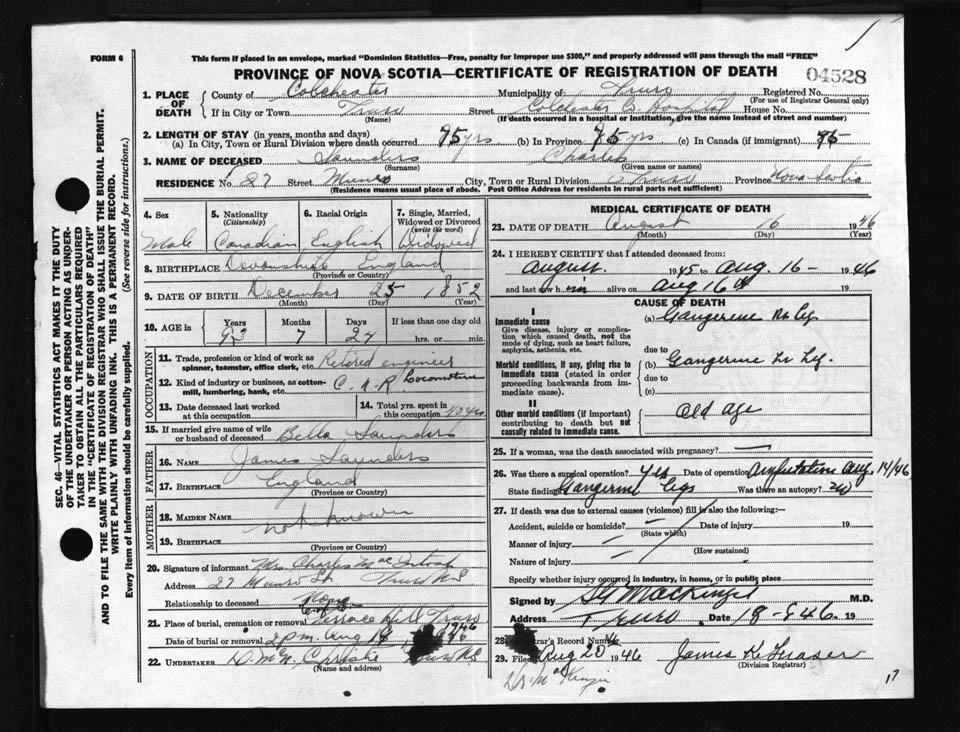 FORM 6
This form if placed in an envelope, marked "Dominion Statistics—Free, penalty for improper use $300," and properly addressed will pass through the mail "FREE"
PROVINCE OF NOVA SCOTIA—CERTIFICATE OF REGISTRATION OF DEATH
04528
1. PLACE OF DEATH
County of Colchester Municipality of Truro Registered No.
(For use of Registrar General only)
If in City or Town Truro Street Colchester Co. Hospital House No.
(Name) (If death occurred in a hospital or institution, give the name instead of street and number)
2. LENGTH OF STAY (in years, months and days)
(a) In City, Town or Rural Division where death occurred 75 yrs (b) In Province 75 yrs (c) In Canada (if immigrant) 75
3. NAME OF DECEASED Saunders Charles
(Surname) (Given name or names)
RESIDENCE No. 27 Street Munro City, Town or Rural Division Truro Province Nova Scotia
(Residence means usual place of abode. Post Office Address for residents in rural parts not sufficient)
SEC. 46—VITAL STATISTICS ACT MAKES IT THE DUTY
OF THE UNDERTAKER OR PERSON ACTING AS UNDER-
TAKER TO OBTAIN ALL THE PARTICULARS REQUIRED
IN THE "CERTIFICATE OF REGISTRATION OF DEATH"
AND TO FILE THE SAME WITH THE DIVISION REGISTRAR WHO SHALL ISSUE THE BURIAL PERMIT.
WRITE PLAINLY WITH UNFADING INK. THIS IS A PERMANENT RECORD.
Every item of information should be carefully supplied. (See reverse side for instructions.)
4. Sex 5. Nationality (Citizenship) 6. Racial Origin 7. Single, Married, Widowed or Divorced (write the word)
Male Canadian English Widowed
8. BIRTHPLACE Devonshire England
(Province or Country)
9. DATE OF BIRTH December 25 1852
(Month) (Day) (Year)
10. AGE in Years Months Days If less than one day old
93 7 24 hrs. or min.
OCCUPATION
11. Trade, profession or kind of work as spinner, teamster, office clerk, etc. Retired engineer
12. Kind of industry or business, as cotton-mill, lumbering, bank, etc. C.N.R Locomotive
13. Date deceased last worked at this occupation
14. Total yrs. spent in this occupation 40 yrs
15. If married give name of wife or husband of deceased Bella Saunders
FATHER
16. NAME James Saunders
17. BIRTHPLACE England
(Province or Country)
MOTHER
18. MAIDEN NAME not known
19. BIRTHPLACE
(Province or Country)
20. Signature of informant Mrs. Charles MacIntosh
Address 27 Munro St. Truro N.S
Relationship to deceased None
21. Place of burial, cremation or removal Terrace Hill Truro
Date of burial or removal 2 p.m. Aug 19 1946
22. UNDERTAKER D. McN. Christie Truro N.S
(Name and address)
MEDICAL CERTIFICATE OF DEATH
23. DATE OF DEATH August 16 1946
(Month) (Day) (Year)
24. I HEREBY CERTIFY that I attended deceased from:
August 1945 to Aug. 16 - 1946
and last saw him alive on Aug 16th 19
CAUSE OF DEATH
I
Immediate cause
Give disease, injury or complication which caused death, not the mode of dying, such as heart failure, asphyxia, asthenia, etc.
(a) Gangerene Rt Leg
due to
Morbid conditions, if any, giving rise to immediate cause (stated in order proceeding backwards from immediate cause).
(b) Gangerene Lt Leg.
due to
(c)
II
Other morbid conditions (if important) contributing to death but not causally related to immediate cause.
Old age
25. If a woman, was the death associated with pregnancy?
26. Was there a surgical operation? yes Date of operation Amputation Aug. 14/46
State findings Gangerene Legs Was there an autopsy? no
27. If death was due to external causes (violence) fill in also the following:—
Accident, suicide or homicide? Date of injury 19
(State which)
Manner of injury
(How sustained)
Nature of injury
Specify whether injury occurred in industry, in home, or in public place
Signed by S G Mackenzie M.D.
Address Truro Date 18-8-46. 19
28. Registrar's Record Number
29. Filed Aug 20 1946 James K. Fraser
(Division Registrar)
Dr. McKenzie
17